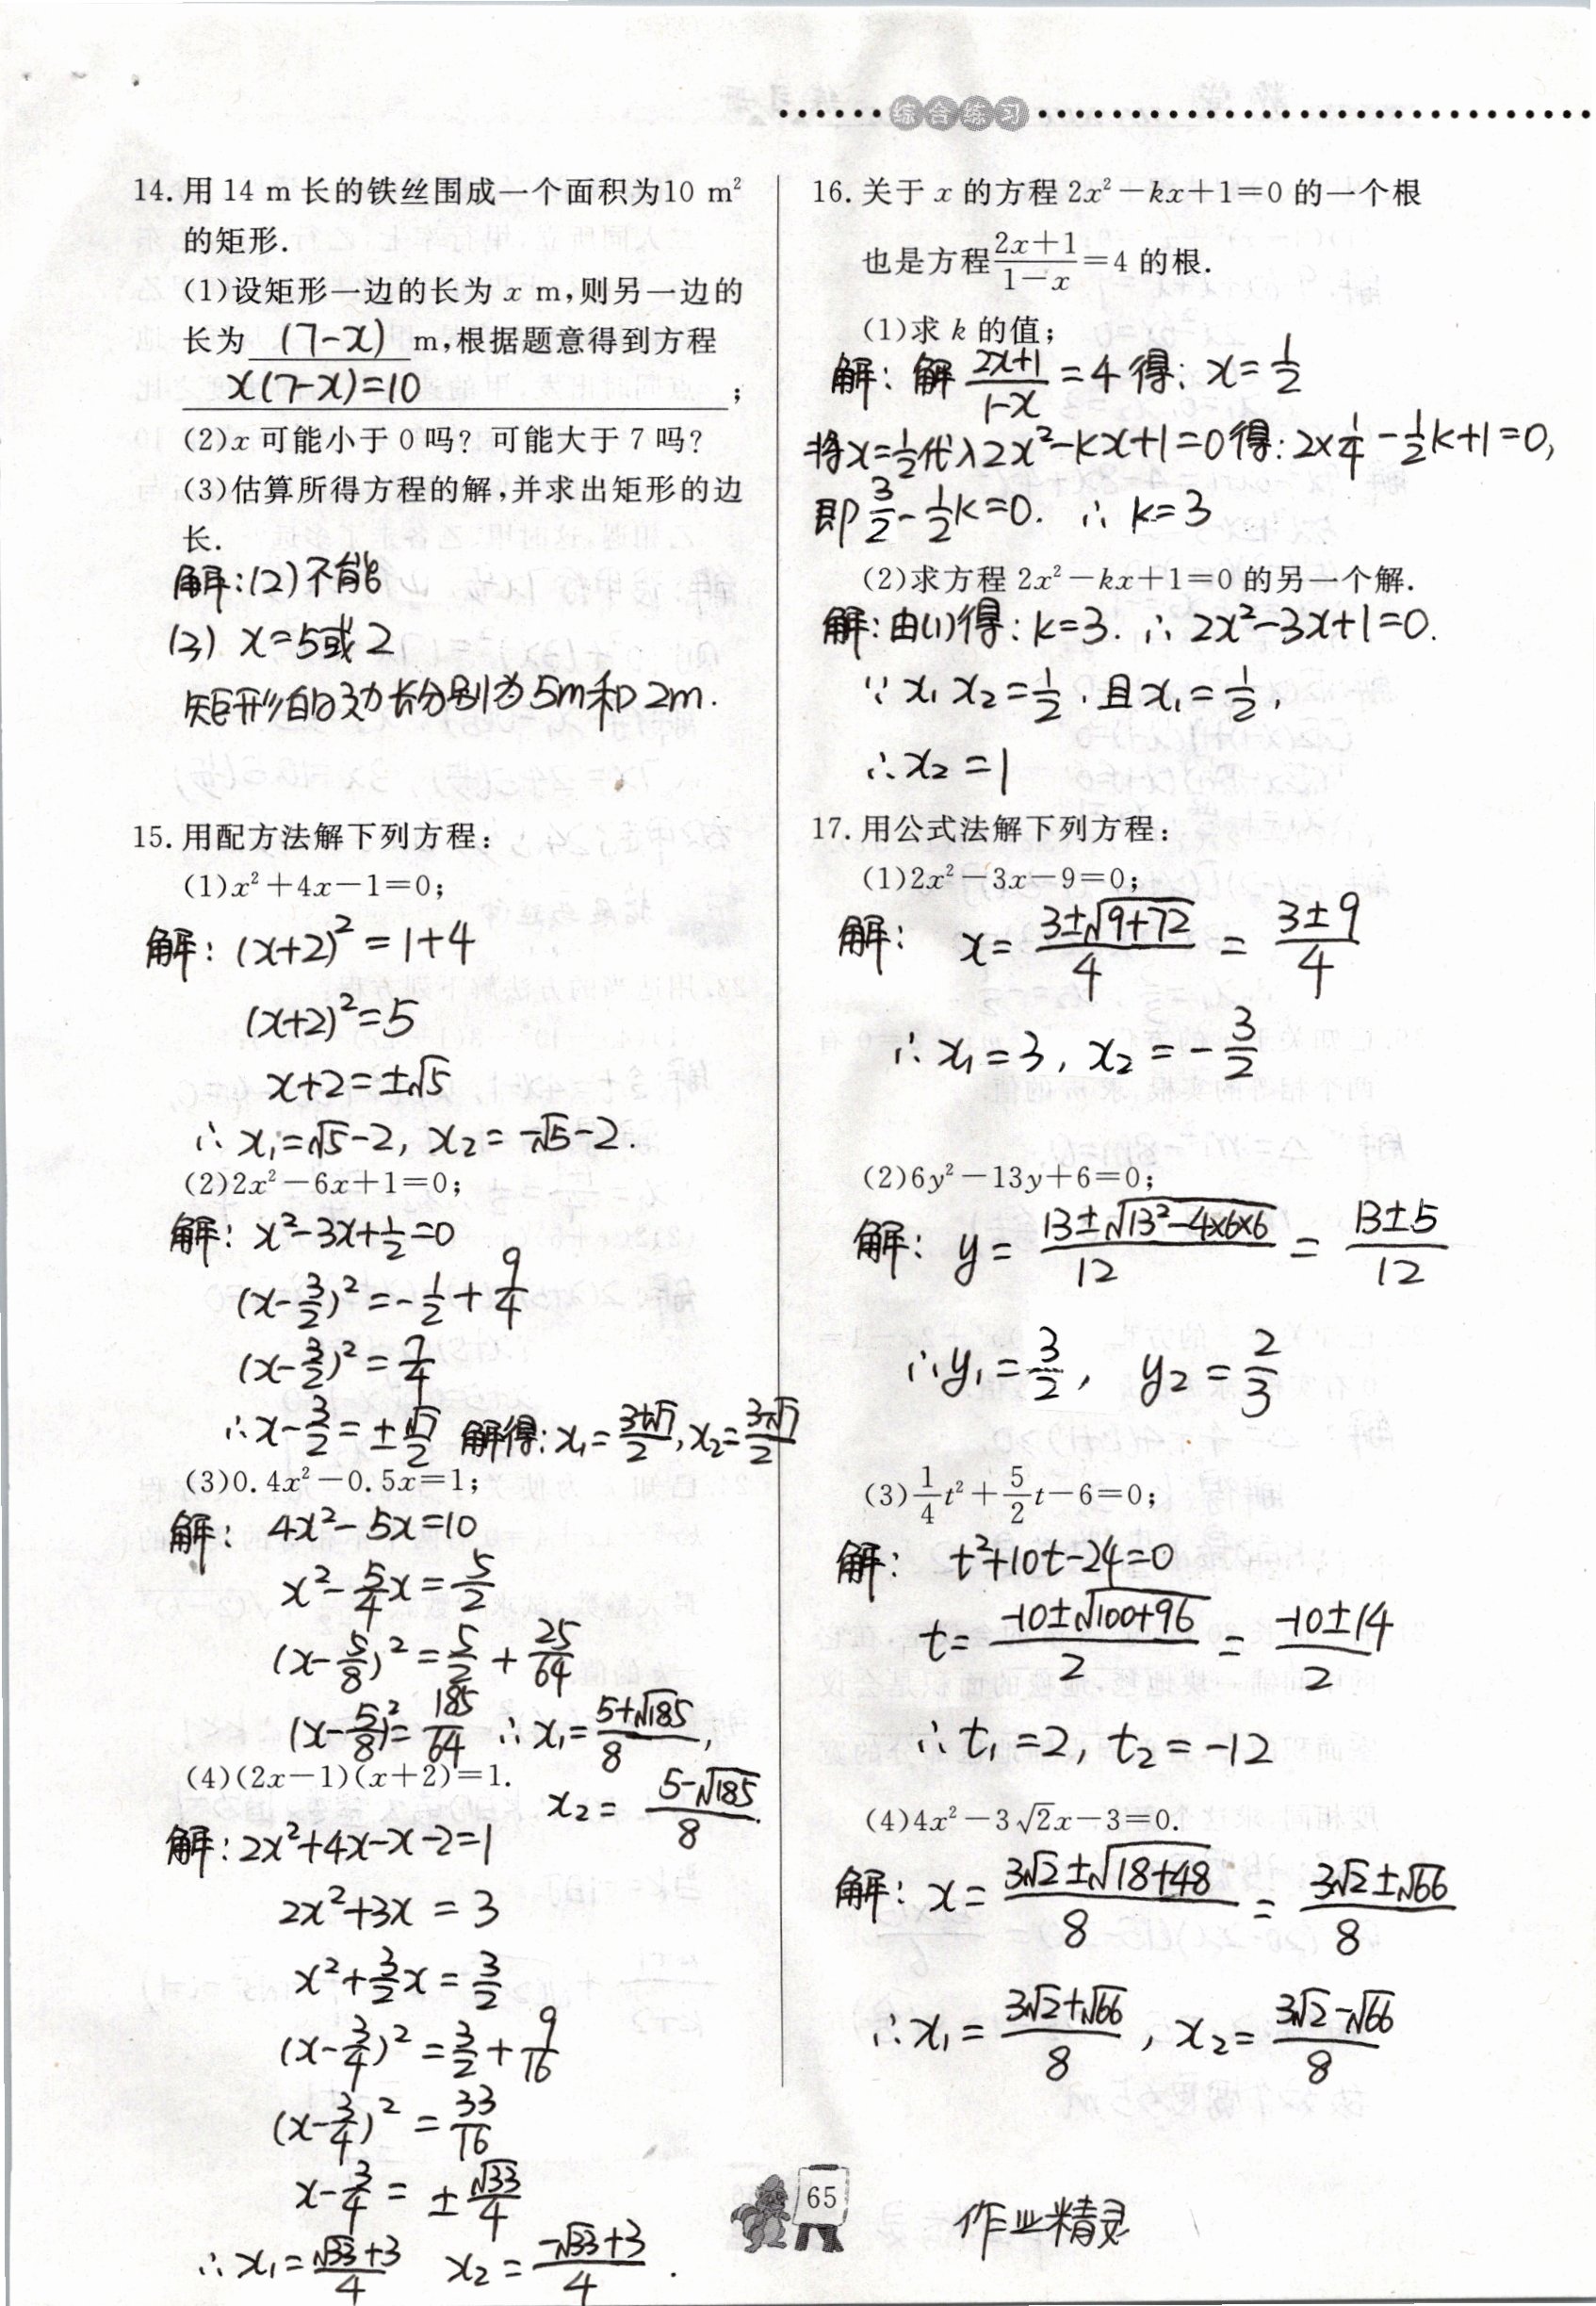 综合练习
14. 用 14 m 长的铁丝围成一个面积为10 m²
的矩形.
(1)设矩形一边的长为 x m,则另一边的
长为 (7-x) m,根据题意得到方程
x(7-x)=10 ;
(2)x 可能小于 0 吗? 可能大于 7 吗?
(3)估算所得方程的解,并求出矩形的边
长.
解:(2)不能
(3) x=5或2
矩形的边长分别为5m和2m.
15. 用配方法解下列方程:
(1)x²+4x-1=0;
解: (x+2)²=1+4
(x+2)²=5
x+2=±√5
∴ x₁=√5-2, x₂=-√5-2.
(2)2x²-6x+1=0;
解: x²-3x+1/2=0
(x-3/2)²=-1/2+9/4
(x-3/2)²=7/4
∴x-3/2=±√7/2 解得:x₁=(3+√7)/2,x₂=(3-√7)/2
(3)0.4x²-0.5x=1;
解: 4x²-5x=10
x²-5/4x=5/2
(x-5/8)²=5/2+25/64
(x-5/8)²=185/64 ∴x₁=(5+√185)/8,
x₂=(5-√185)/8.
(4)(2x-1)(x+2)=1.
解:2x²+4x-x-2=1
2x²+3x=3
x²+3/2x=3/2
(x-3/4)²=3/2+9/16
(x-3/4)²=33/16
x-3/4=±√33/4
∴x₁=(√33+3)/4 x₂=(-√33+3)/4.
16. 关于 x 的方程 2x²-kx+1=0 的一个根
也是方程(2x+1)/(1-x)=4 的根.
(1)求 k 的值;
解: 解(2x+1)/(1-x)=4得: x=1/2
将x=1/2代入2x²-kx+1=0得:2×1/4-1/2k+1=0,
即3/2-1/2k=0. ∴ k=3
(2)求方程 2x²-kx+1=0 的另一个解.
解:由(1)得:k=3. ∴ 2x²-3x+1=0.
∵ x₁x₂=1/2.且x₁=1/2,
∴x₂=1
17. 用公式法解下列方程:
(1)2x²-3x-9=0;
解: x=(3±√(9+72))/4=(3±9)/4
∴ x₁=3, x₂=-3/2
(2)6y²-13y+6=0;
解: y=(13±√(13²-4×6×6))/12=(13±5)/12
∴y₁=3/2, y₂=2/3
(3)1/4t²+5/2t-6=0;
解: t²+10t-24=0
t=(-10±√(100+96))/2=(-10±14)/2
∴t₁=2, t₂=-12
(4)4x²-3√2x-3=0.
解: x=(3√2±√(18+48))/8=(3√2±√66)/8
∴x₁=(3√2+√66)/8, x₂=(3√2-√66)/8
65
作业精灵